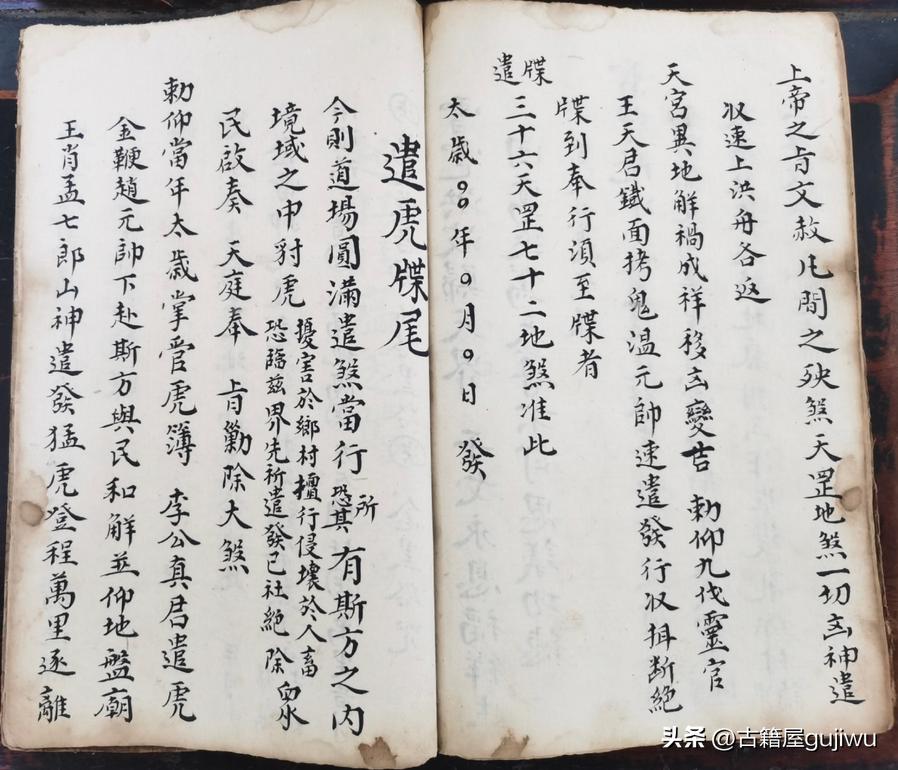 上帝之旨文赦凡間之殃煞天罡地煞一切凶神遣
収速上洪舟各返
天宮異地解禍成祥移凶變吉 勅仰九伐靈官
王天君鐵面拷鬼温元帥速遣發行収揖斷絶
牒到奉行須至牒者
牒遣三十六天罡七十二地煞准此
太歲〇〇年〇月〇日 發
遣虎牒尾
今則道場圓滿遣煞當行所恐其有斯方之內
境域之中豺虎擾害於鄉村擅行侵壞於人畜
恐臨茲界先祈遣發已社絶除衆
民啟奏 天庭奉 旨勦除大煞
勅仰當年太歲掌管虎簿 李公真君遣虎
金鞭趙元帥下赴斯方與民和解並仰地盤廟
王肖孟七郎山神遣發猛虎登程萬里逐離
头条 @古籍屋gujiwu